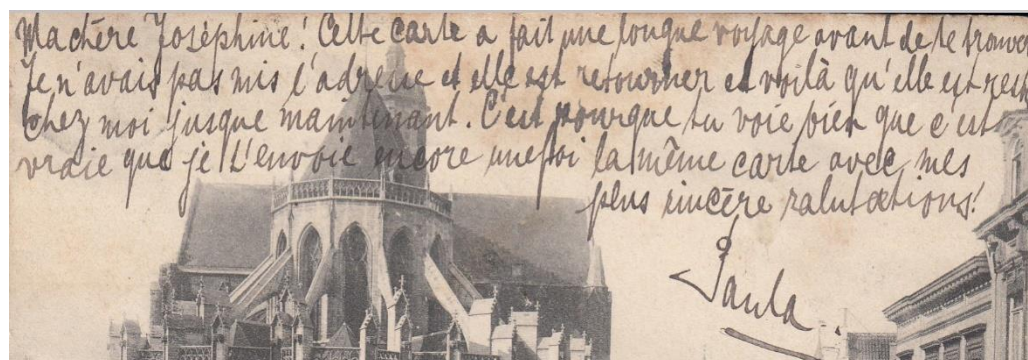 Ma chère Joséphine! Cette carte a fait une longue voyage avant de te trouver
Je n'avais pas mis l'adresse et elle est retourner et voilà qu'elle est
chez moi jusque maintenant. C'est pourque tu voie bien que c'est
vraie que je t'envoie encore unefoi la même carte avec mes
plus sincère salutations!
Paula.